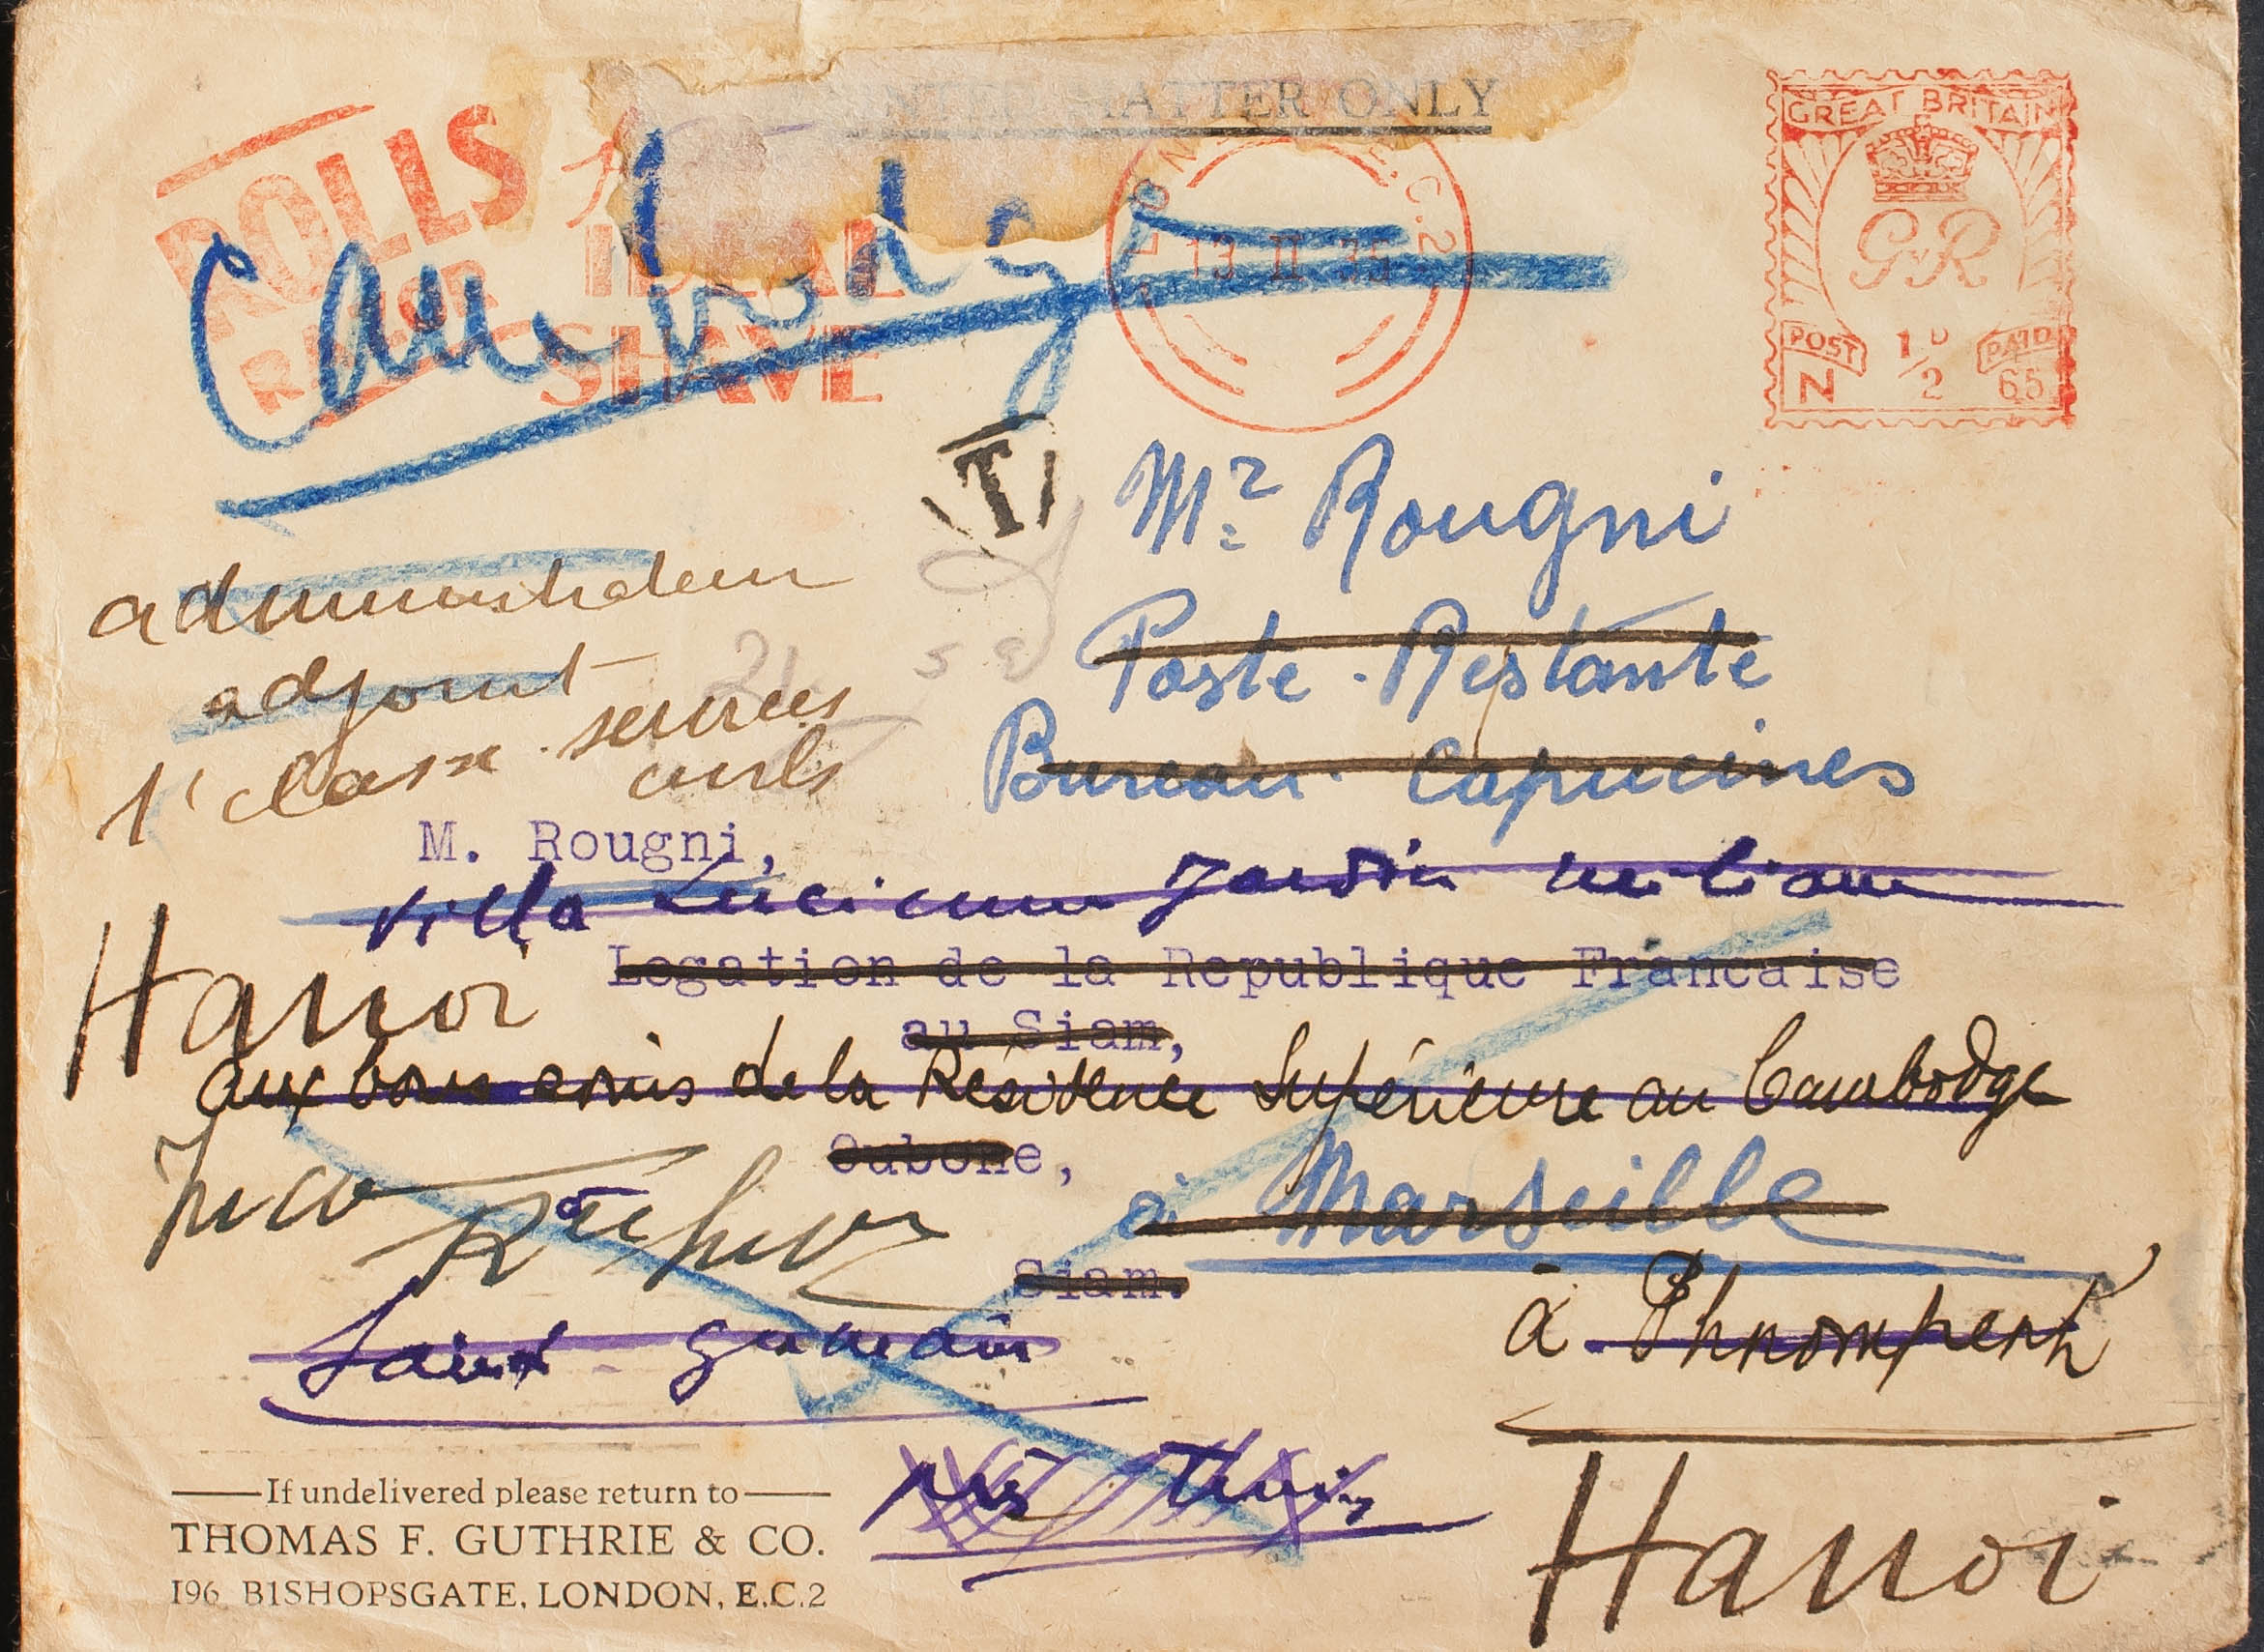 PRINTED MATTER ONLY
ROLLS
RAZOR IDEAL
SHAVE
LONDON E.C.2
13 II 35
GREAT BRITAIN
GvR
POST PAID
N 1/2D 65
Cambodge
T
Mr Rougni
Poste-Restante
Bureau Capucines
administrateur
adjoint
1e classe services
civils
M. Rougni,
Villa Jardin
Legation de la Republique Francaise
au Siam,
Hanoi
aux bons soins de la Résidence Supérieure au Cambodge
Oubone,
à Marseille
Siam.
Saint Germain
à Phnompenh
près
Hanoi
If undelivered please return to
THOMAS F. GUTHRIE & CO.
196 BISHOPSGATE, LONDON, E.C.2